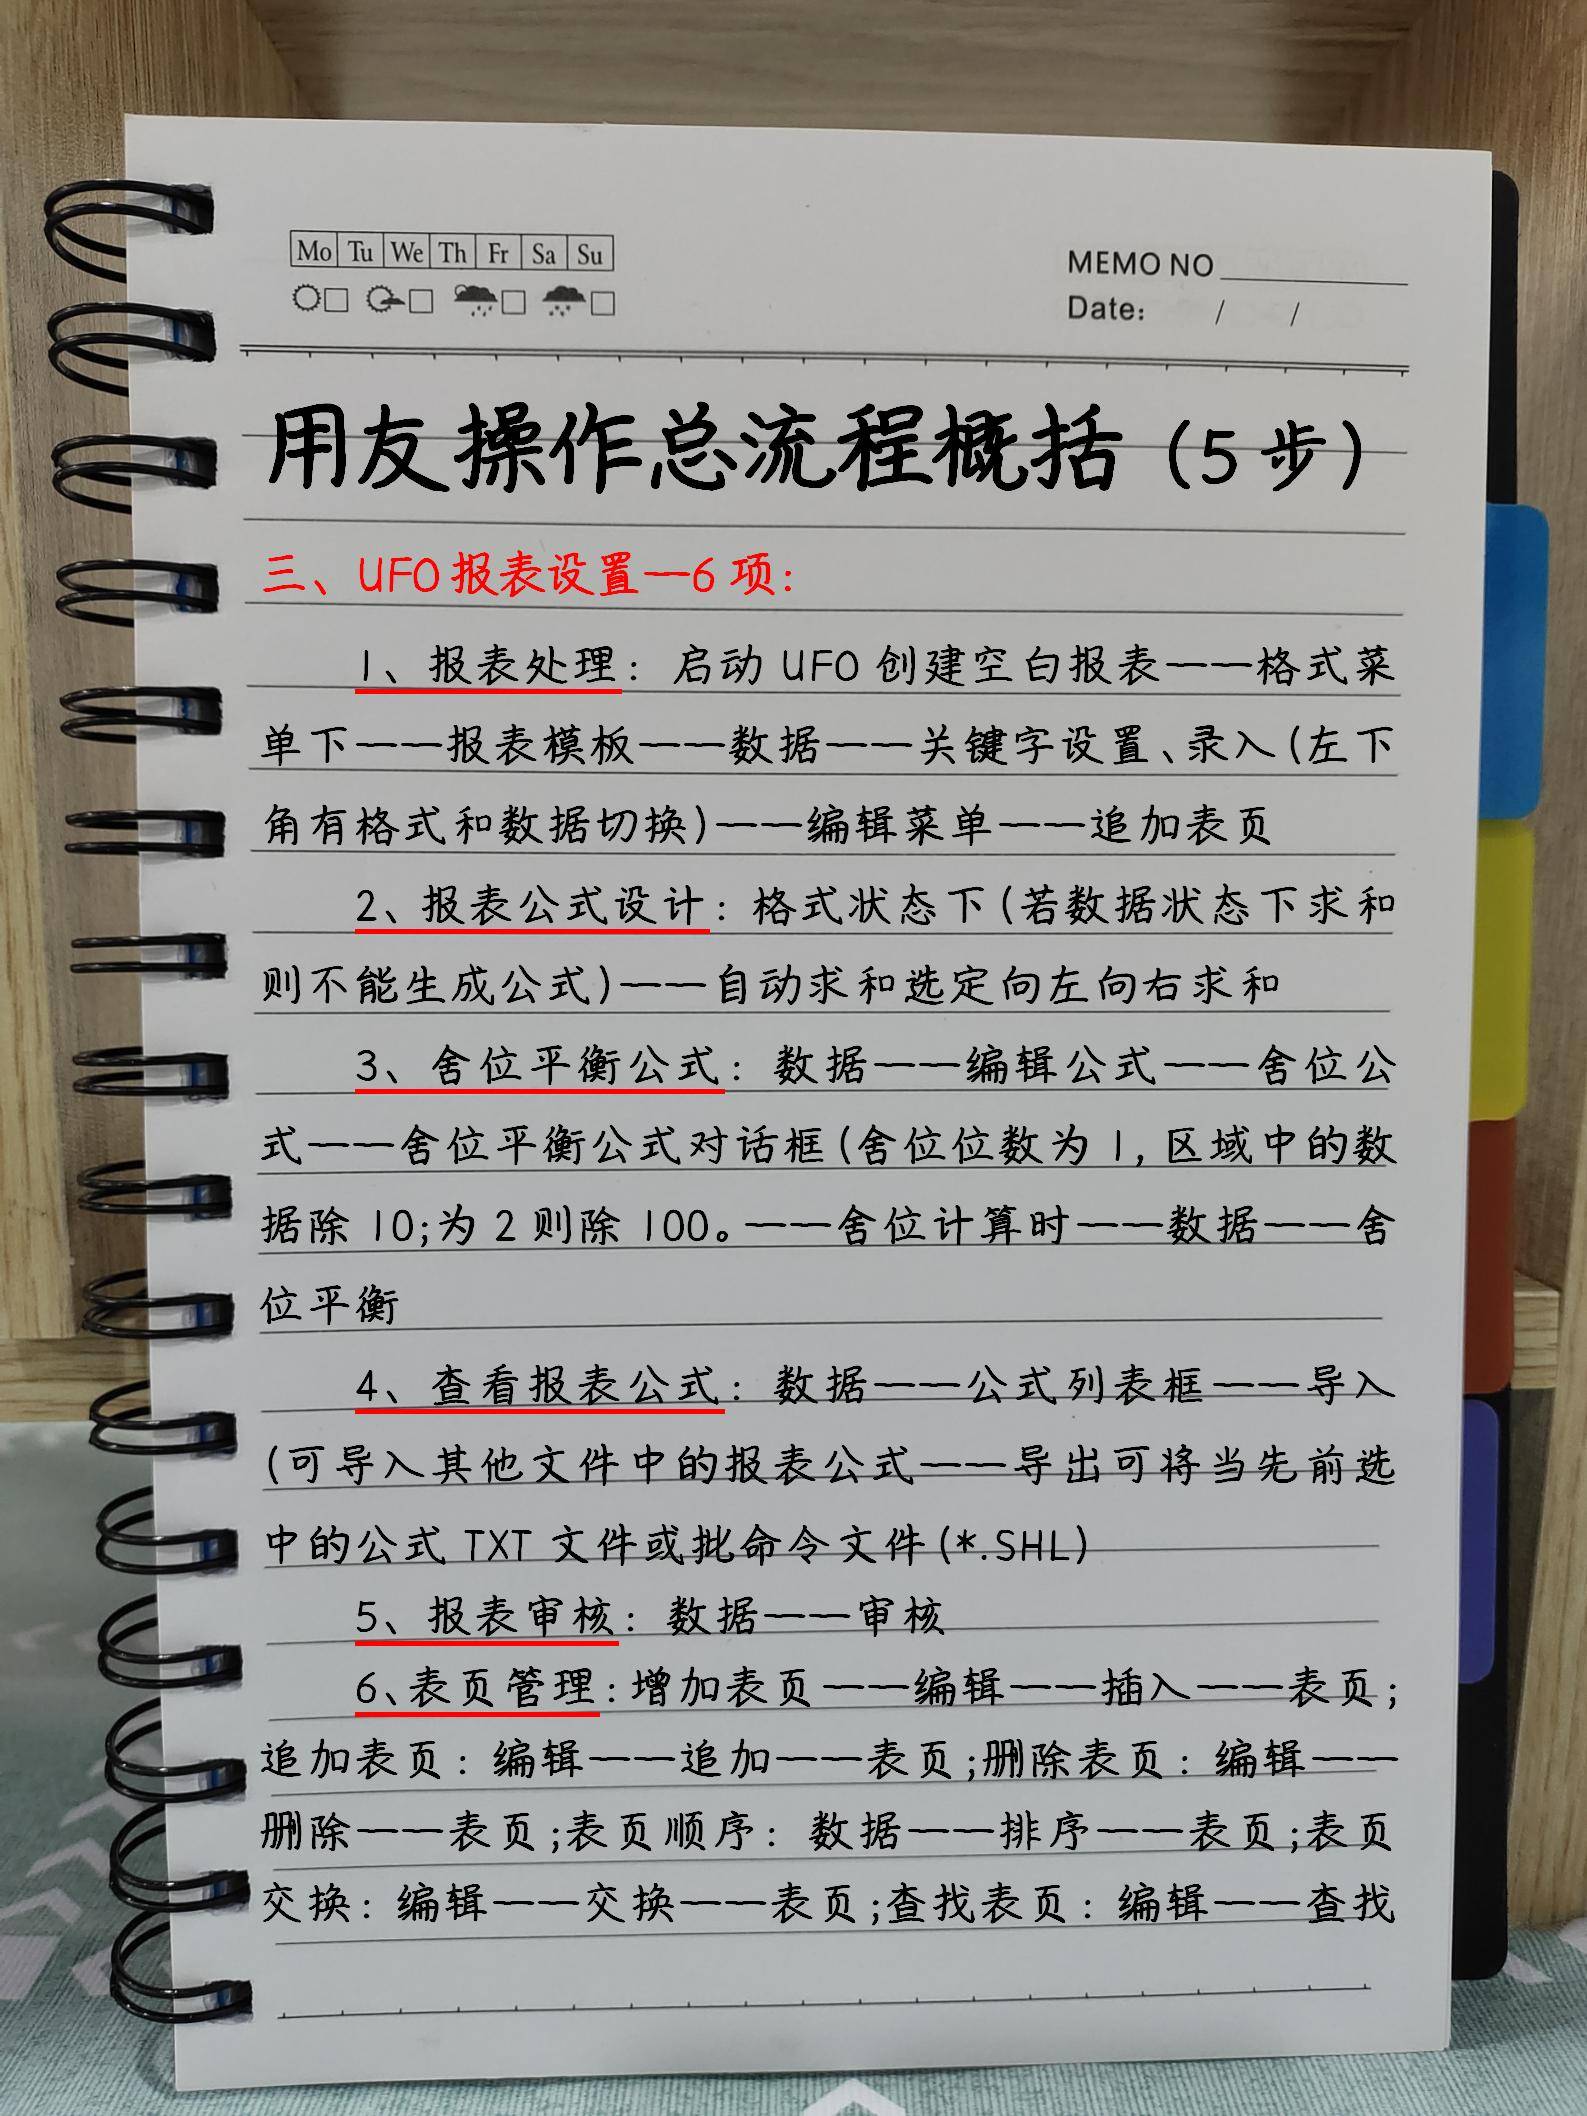 Mo Tu We Th Fr Sa Su
MEMO NO
Date: / /
用友操作总流程概括（5步）
三、UFO报表设置—6项：
1、报表处理：启动UFO创建空白报表——格式菜
单下——报表模板——数据——关键字设置、录入(左下
角有格式和数据切换)——编辑菜单——追加表页
2、报表公式设计：格式状态下(若数据状态下求和
则不能生成公式)——自动求和选定向左向右求和
3、舍位平衡公式：数据——编辑公式——舍位公
式——舍位平衡公式对话框(舍位位数为1,区域中的数
据除10;为2则除100。——舍位计算时——数据——舍
位平衡
4、查看报表公式：数据——公式列表框——导入
(可导入其他文件中的报表公式——导出可将当先前选
中的公式TXT文件或批命令文件(*.SHL)
5、报表审核：数据——审核
6、表页管理：增加表页——编辑——插入——表页；
追加表页：编辑——追加——表页;删除表页：编辑——
删除——表页;表页顺序：数据——排序——表页;表页
交换：编辑——交换——表页;查找表页：编辑——查找